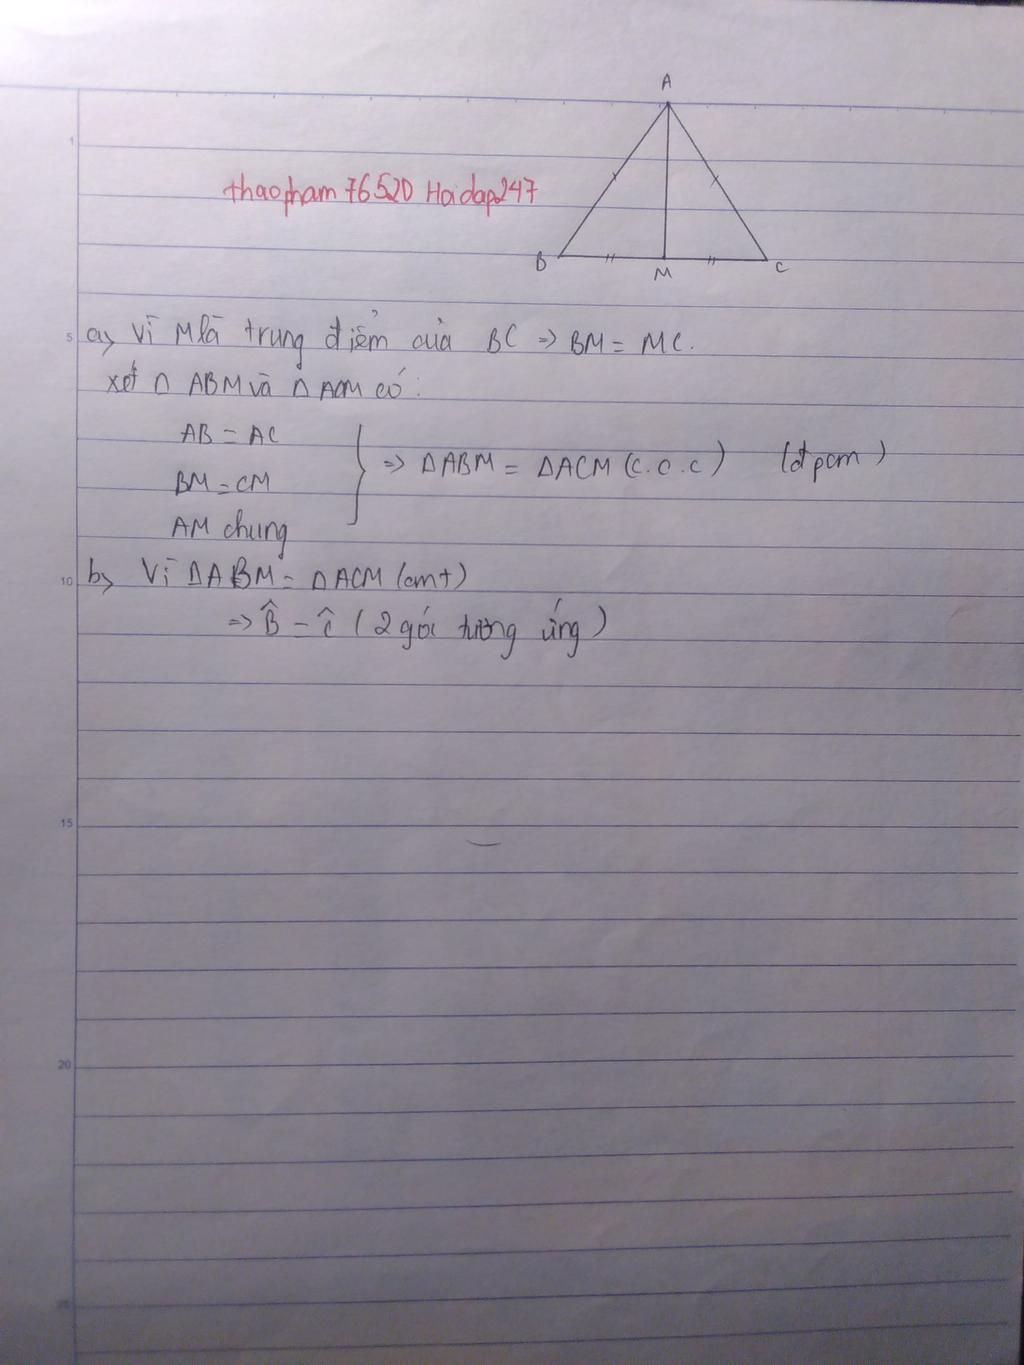 A
thaopham 76520 Hoidap247
B
M
C
a, Vì M là trung điểm của BC => BM = MC.
xét Δ ABM và Δ ACM có:
AB = AC
BM = CM
AM chung
=> ΔABM = ΔACM (c.c.c) (đpcm)
b, Vì ΔABM = ΔACM (cmt)
=> B̂ = Ĉ (2 góc tương ứng)
1
5
10
15
20
25